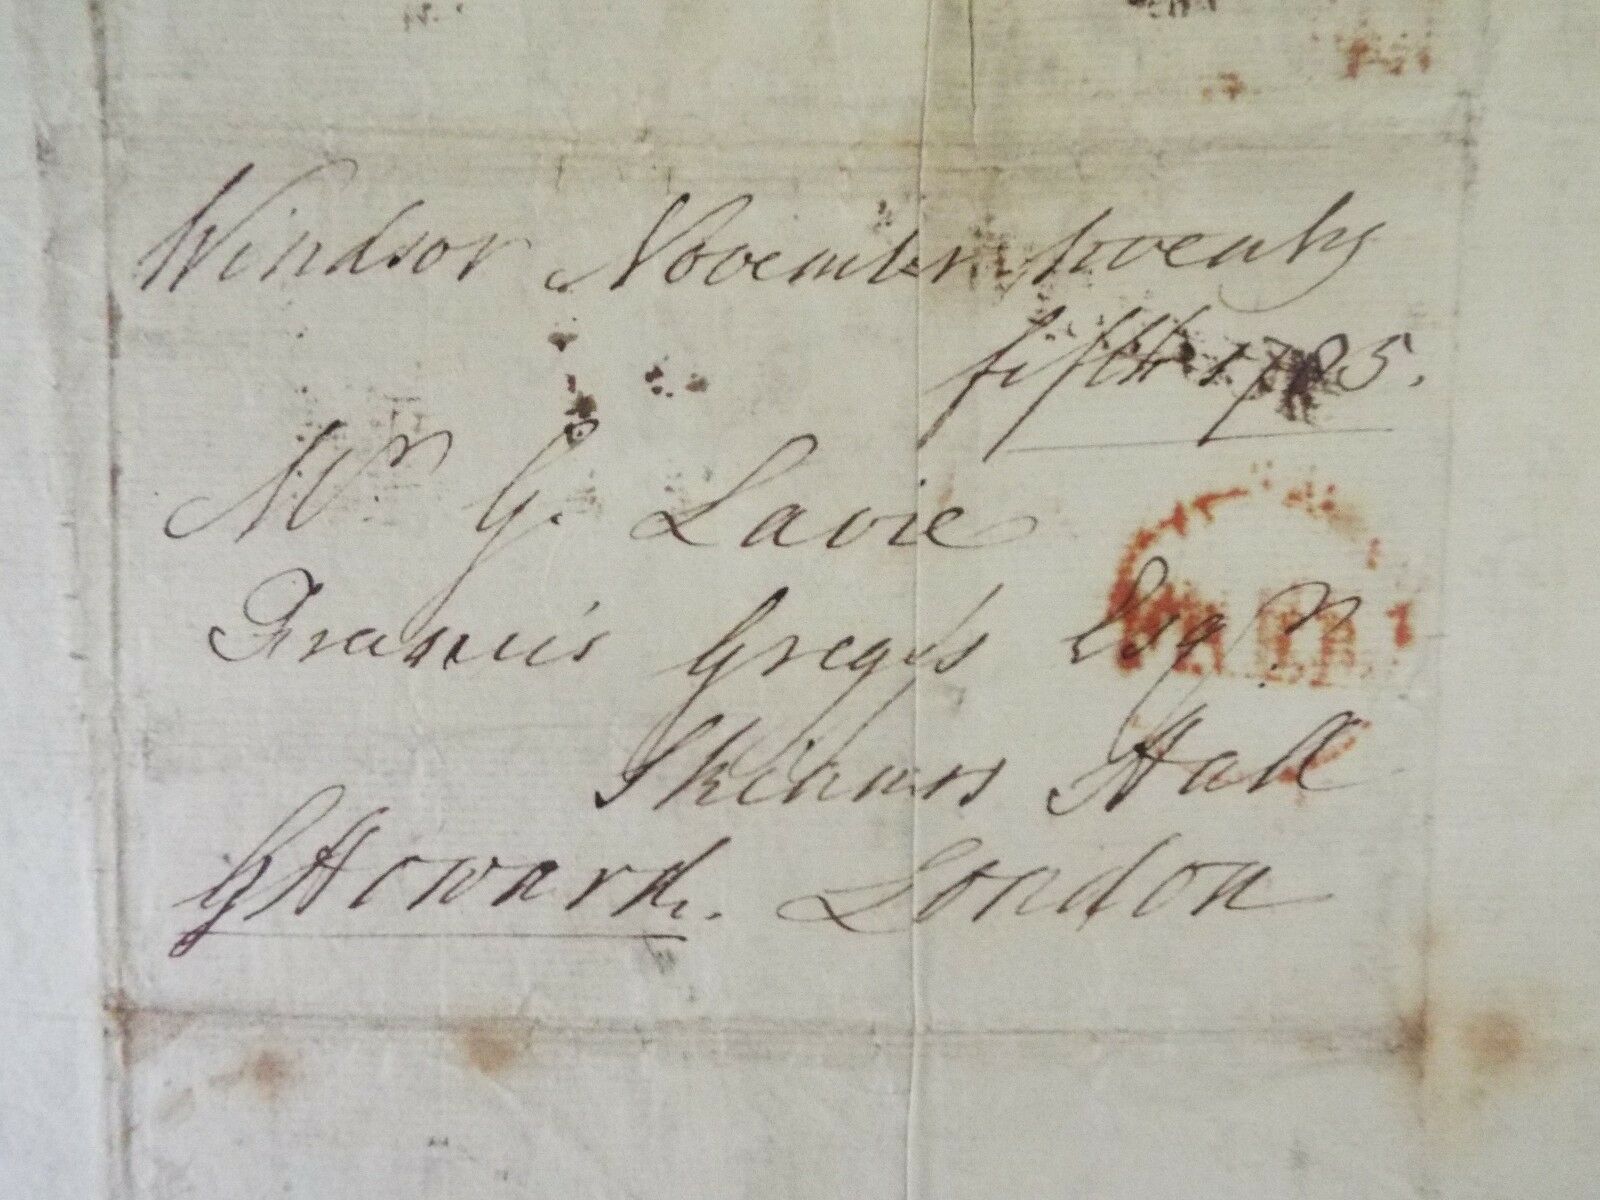 Windsor November twenty
fifth 1785.
Mr. G. Lavie
Francis Gregg's Esqr.
Skinners Hall
GHoward. London